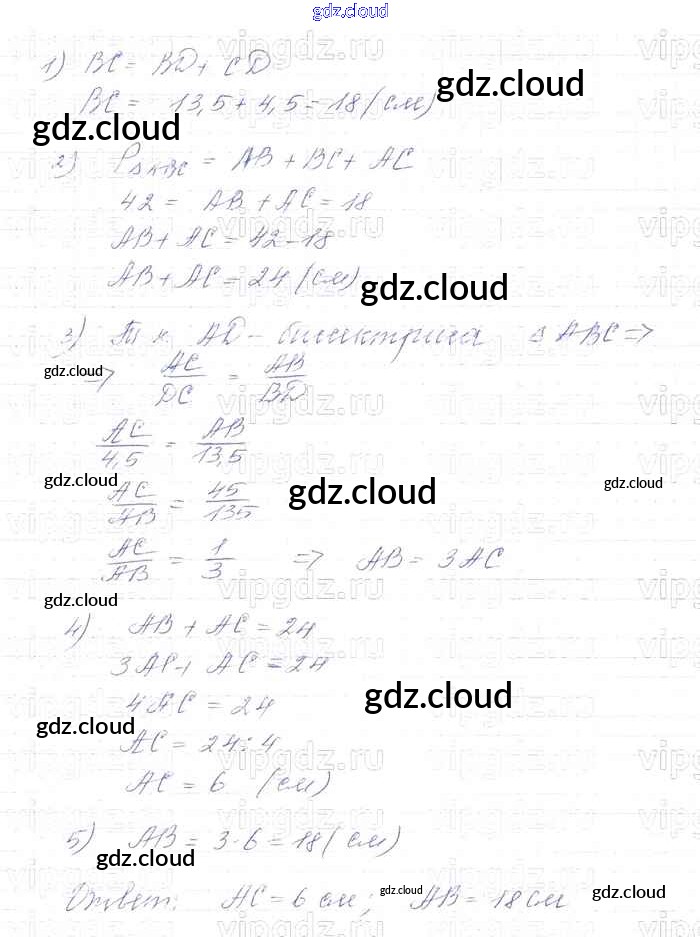 gdz.cloud
1) BC = BD + CD
gdz.cloud
BC = 13,5 + 4,5 = 18 (см)
gdz.cloud
2) P△ABC = AB + BC + AC
42 = AB + AC = 18
AB + AC = 42 - 18
AB + AC = 24 (см)
gdz.cloud
3) Т. к. AD - биссектриса △ ABC =>
gdz.cloud
=> AC/DC = AB/BD
AC/4,5 = AB/13,5
gdz.cloud
gdz.cloud
gdz.cloud
AC/AB = 45/135
AC/AB = 1/3 => AB = 3AC
gdz.cloud
4) AB + AC = 24
3AC + AC = 24
gdz.cloud
4AC = 24
gdz.cloud
AC = 24 : 4
AC = 6 (см)
5) AB = 3 · 6 = 18 (см)
gdz.cloud
Ответ: AC = 6 см; AB = 18 см
gdz.cloud
gdz.cloud
vipgdz.ru